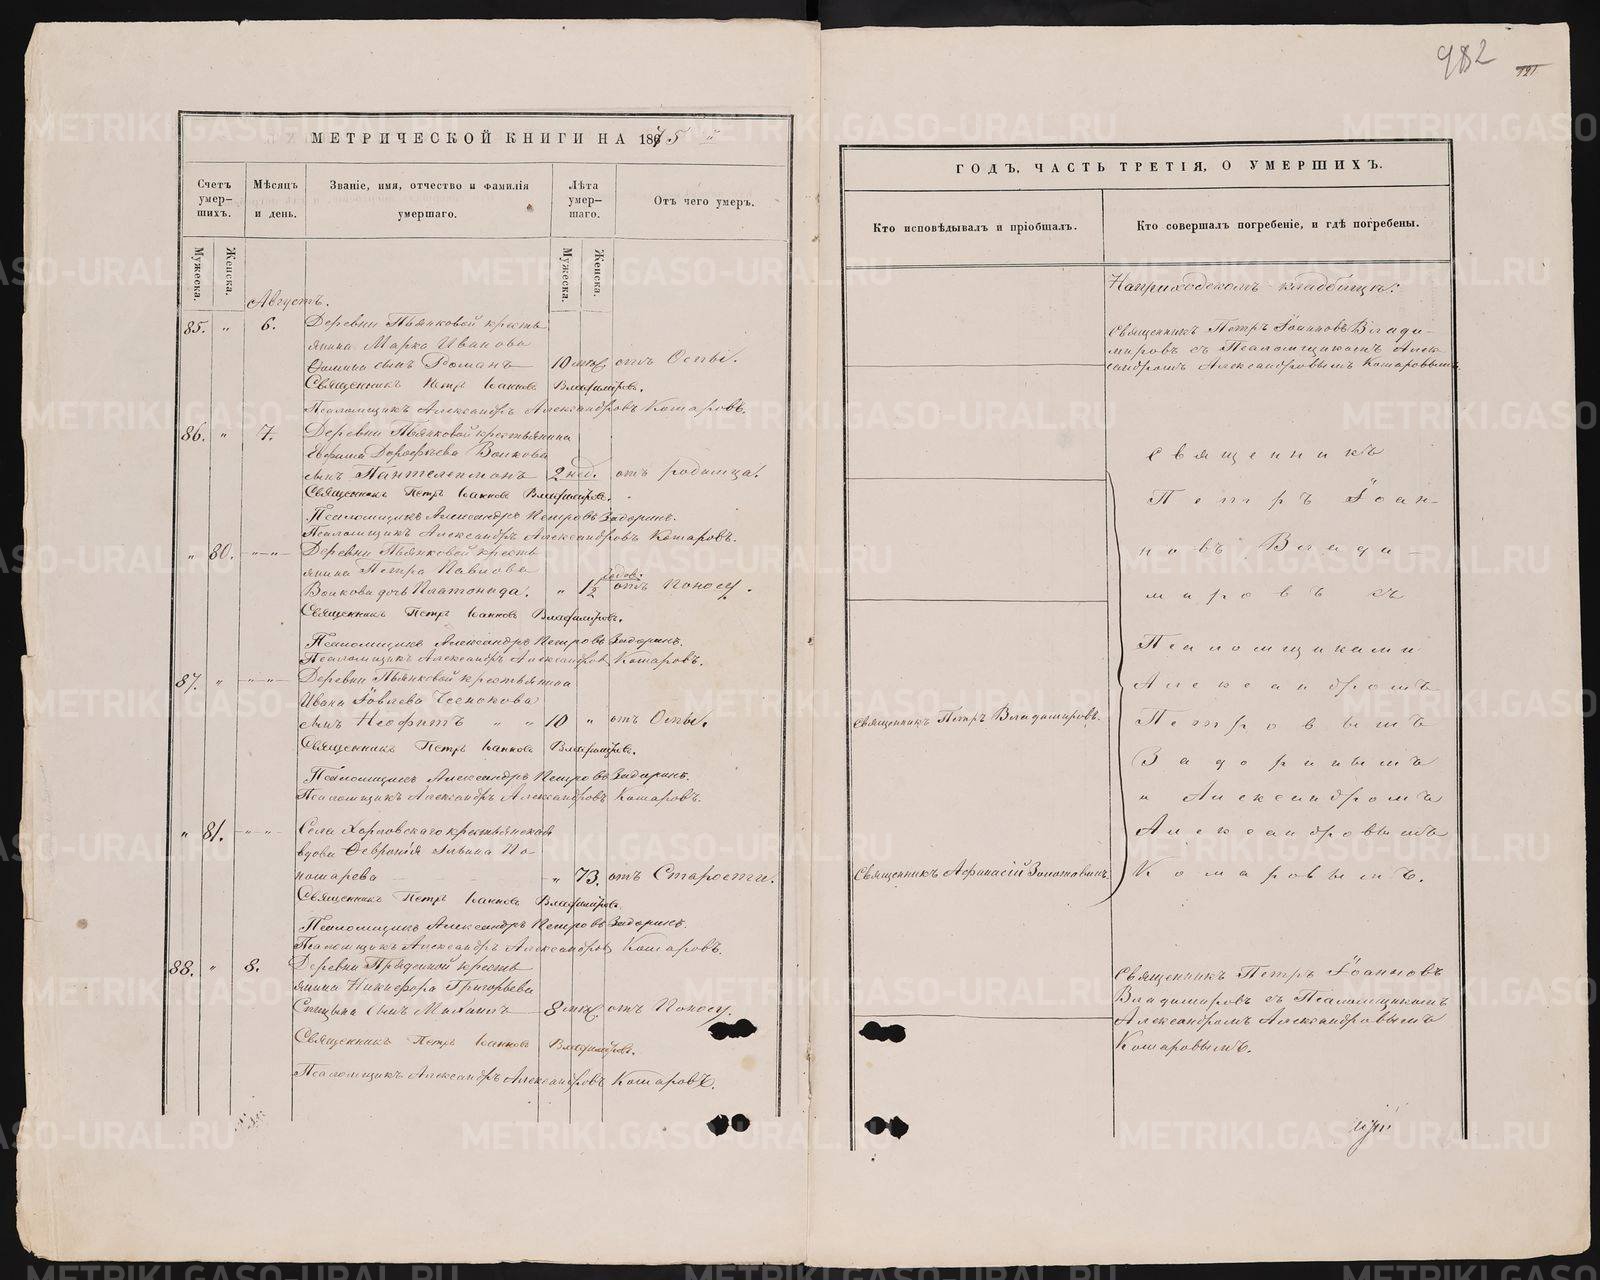 982
121
МЕТРИЧЕСКОЙ КНИГИ НА 1875
Счетъ умер-шихъ.
Мѣсяцъ и день.
Званіе, имя, отчество и фамилія умершаго.
Лѣта умер-шаго.
Отъ чего умеръ.
Мужеска.
Женска.
Мужеска.
Женска.
Августъ.
85. " 6. Деревни Пьянковой кресть
янина Марка Иванова
Ѳомина сынъ Романъ 10 мѣс. отъ Оспы.
Священникъ Петръ Іоанновъ Владиміровъ.
Псаломщикъ Александръ Александровъ Комаровъ.
86. " 7. Деревни Пьянковой крестьянина
Евфима Дороѳѣева Волкова
сынъ Пантелеимонъ 2 нед. отъ родимца.
Священникъ Петръ Іоанновъ Владиміровъ.
Псаломщикъ Александръ Петровъ Задоринъ.
Псаломщикъ Александръ Александровъ Комаровъ.
" 80. "—"— Деревни Пьянковой кресть
янина Петра Павлова
Волкова дочь Платонида. " 1½ годов. отъ Поносу.
Священникъ Петръ Іоанновъ Владиміровъ.
Псаломщикъ Александръ Петровъ Задоринъ.
Псаломщикъ Александръ Александровъ Комаровъ.
87. " —"—"— Деревни Пьянковой крестьянина
Ивана Іовлева Чеснокова
сынъ Неофитъ " " 10 " отъ Оспы.
Священникъ Петръ Іоанновъ Владиміровъ.
Псаломщикъ Александръ Петровъ Задоринъ.
Псаломщикъ Александръ Александровъ Комаровъ.
" 81. —"—"— Села Харловскаго крестьянская
вдова Ѳевронія Ильина По
номарева " 73. отъ Старости.
Священникъ Петръ Іоанновъ Владиміровъ.
Псаломщикъ Александръ Петровъ Задоринъ.
Псаломщикъ Александръ Александровъ Комаровъ.
88. " 8. Деревни Пряденной кресть
янина Никифора Григорьева
Спицына сынъ Михаилъ 8 мѣс. отъ Поносу.
Священникъ Петръ Іоанновъ Владиміровъ.
Псаломщикъ Александръ Александровъ Комаровъ.
ГОДЪ, ЧАСТЬ ТРЕТІЯ, О УМЕРШИХЪ.
Кто исповѣдывалъ и пріобщалъ.
Кто совершалъ погребеніе, и гдѣ погребены.
На приходскомъ кладбищѣ:
Священникъ Петръ Іоанновъ Влади-
міровъ съ Псаломщикомъ Алек
сандромъ Александровымъ Комаровымъ
Священникъ
Петръ Іоан-
новъ Влади-
міровъ съ
Псаломщиками
Александромъ
Священникъ Петръ Владиміровъ.
Петровымъ
Задоринымъ
и Александромъ
Александровымъ
Священникъ Аѳанасій Золотавинъ.
Комаровымъ.
Священникъ Петръ Іоанновъ
Владиміровъ съ Псаломщикомъ
Александромъ Александровымъ
Комаровымъ.